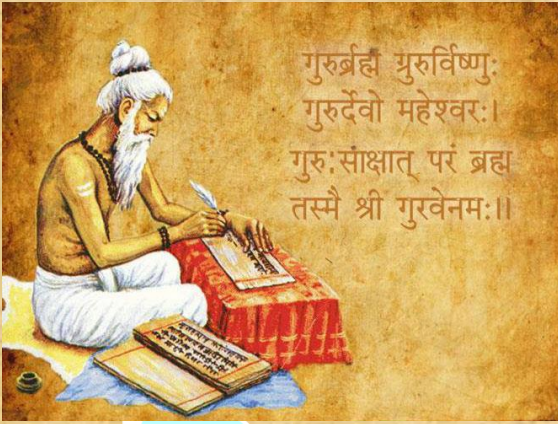 गुरुर्ब्रह्म ग्रुरुर्विष्णुः
गुरुर्देवो महेश्वरः।
गुरुःसाक्षात् परं ब्रह्म
तस्मै श्री गुरवेनमः॥